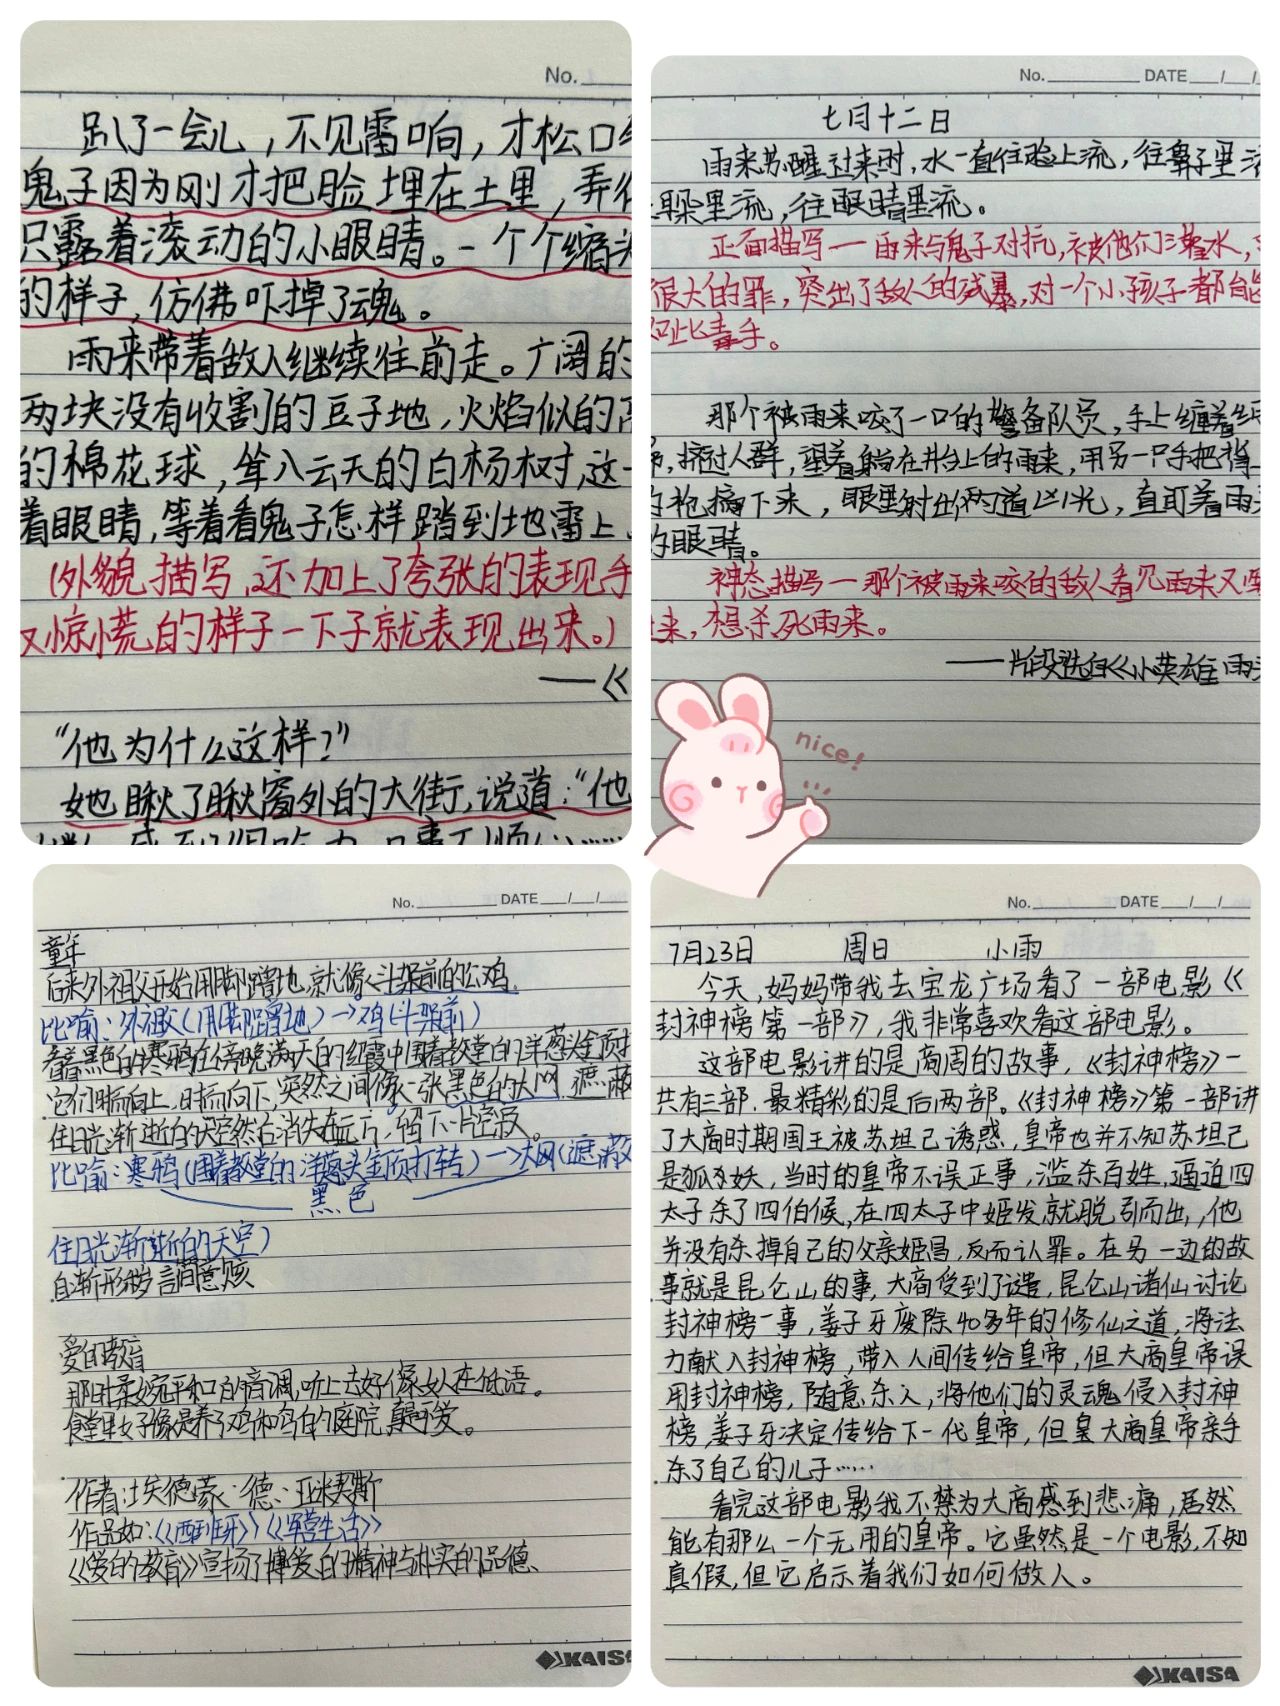 No.
趴了一会儿，不见雷响，才松口
鬼子因为刚才把脸埋在土里，弄
只露着滚动的小眼睛。一个个缩
的样子，仿佛吓掉了魂。
雨来带着敌人继续往前走。广阔的
两块没有收割的豆子地，火焰似的
的棉花球，耸入云天的白杨树，这一
着眼睛，等着看鬼子怎样踏到地雷上
（外貌描写，还加上了夸张的表现手
又惊慌的样子一下子就表现出来。）
——《
“他为什么这样？”
她瞅了瞅窗外的大街，说道：“他
No. DATE / /
七月十二日
雨来苏醒过来时，水一直往脸上流，往鼻子里
躲里流，往眼睛里流。
正面描写一雨来与鬼子对抗，被他们灌水，
很大的罪，突出了敌人的残暴，对一个小孩子都能
如此毒手。
那个被雨来咬了一口的警备队员，手上缠着
，挤过人群，望着躺在井台上的雨来，用另一只手把
的枪摘下来，眼里射出两道凶光，直盯着雨
的眼睛。
神态描写一那个被雨来咬的敌人看见雨来又
来，想杀死雨来。
——片段选自《小英雄雨
nice!
No. DATE / /
童年
后来外祖父开始用脚蹭地，就像斗架前的公鸡.
比喻：外祖父（用脚蹭地）→鸡（斗架前）
看着黑色的寒鸦在傍晚满天的红霞中围着教堂的洋葱头金顶打
它们时而向上，时而向下，突然之间像一张黑色的大网，遮蔽
住日光渐逝的天空然后消失在远方，留下一片空寂。
比喻：寒鸦（围着教堂的洋葱头金顶打转）→大网（遮蔽
黑色
住日光渐逝的天空）
自渐形秽 言简意赅
爱的教育
那时柔婉平和的音调，听上去好像女人在低语。
食堂里女子像是养了鸡和鸟的庭院，
作者：埃德蒙·德·亚米契斯
作品如：《西班牙》《军营生活》
《爱的教育》宣扬了博爱的精神与朴实的品德、
KAISA
No. DATE / /
7月23日 周日 小雨
今天，妈妈带我去宝龙广场看了一部电影《
封神榜第一部》，我非常喜欢看这部电影。
这部电影讲的是商周的故事，《封神榜》一
共有三部，最精彩的是后两部。《封神榜》第一部讲
了大商时期国王被苏坦己诱惑，皇帝也并不知苏坦己
是狐妖，当时的皇帝不误正事，滥杀百姓，逼迫四
太子杀了四伯候，在四太子中姬发就脱引而出，他
并没有杀掉自己的父亲姬昌，反而认罪。在另一边的故
事就是昆仑山的事，大商受到了谴，昆仑山诸仙讨论
封神榜一事，姜子牙废除40多年的修仙之道，将法
力献入封神榜，带入人间传给皇帝，但大商皇帝误
用封神榜，随意杀人，将他们的灵魂侵入封神
榜，姜子牙决定传给下一代皇帝，但皇大商皇帝亲手
杀了自己的儿子……
看完这部电影我不禁为大商感到悲痛，居然
能有那么一个无用的皇帝。它虽然是一个电影，不知
真假，但它启示着我们如何做人。
KAISA